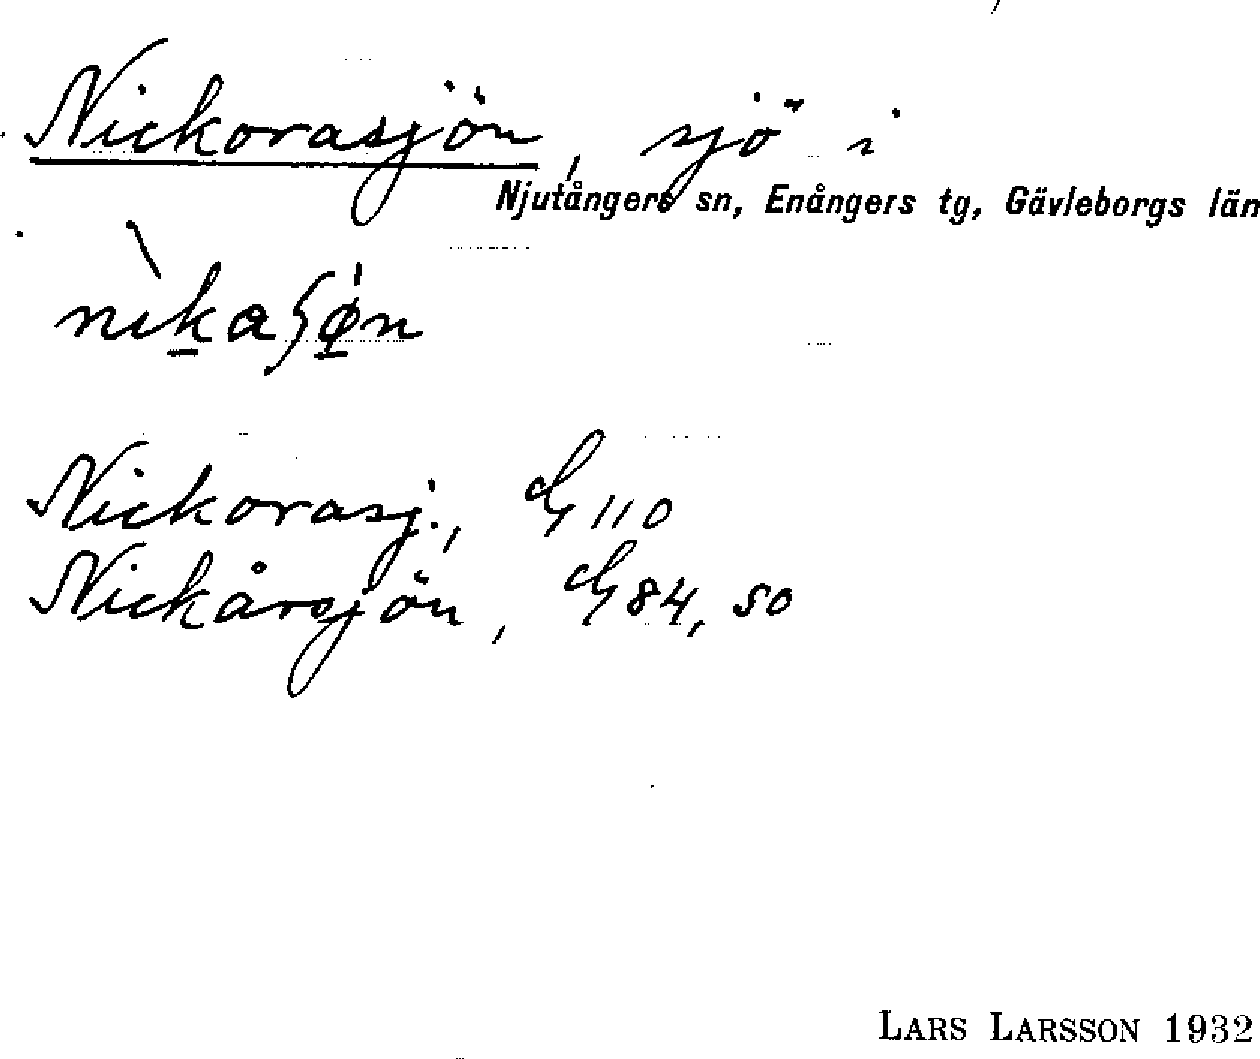 Nickorasjön, sjö i
Njutångers sn, Enångers tg, Gävleborgs län
nikaʃøn
Nickorasj., G 110
Nickårsjön, G 84, 50
LARS LARSSON 1932